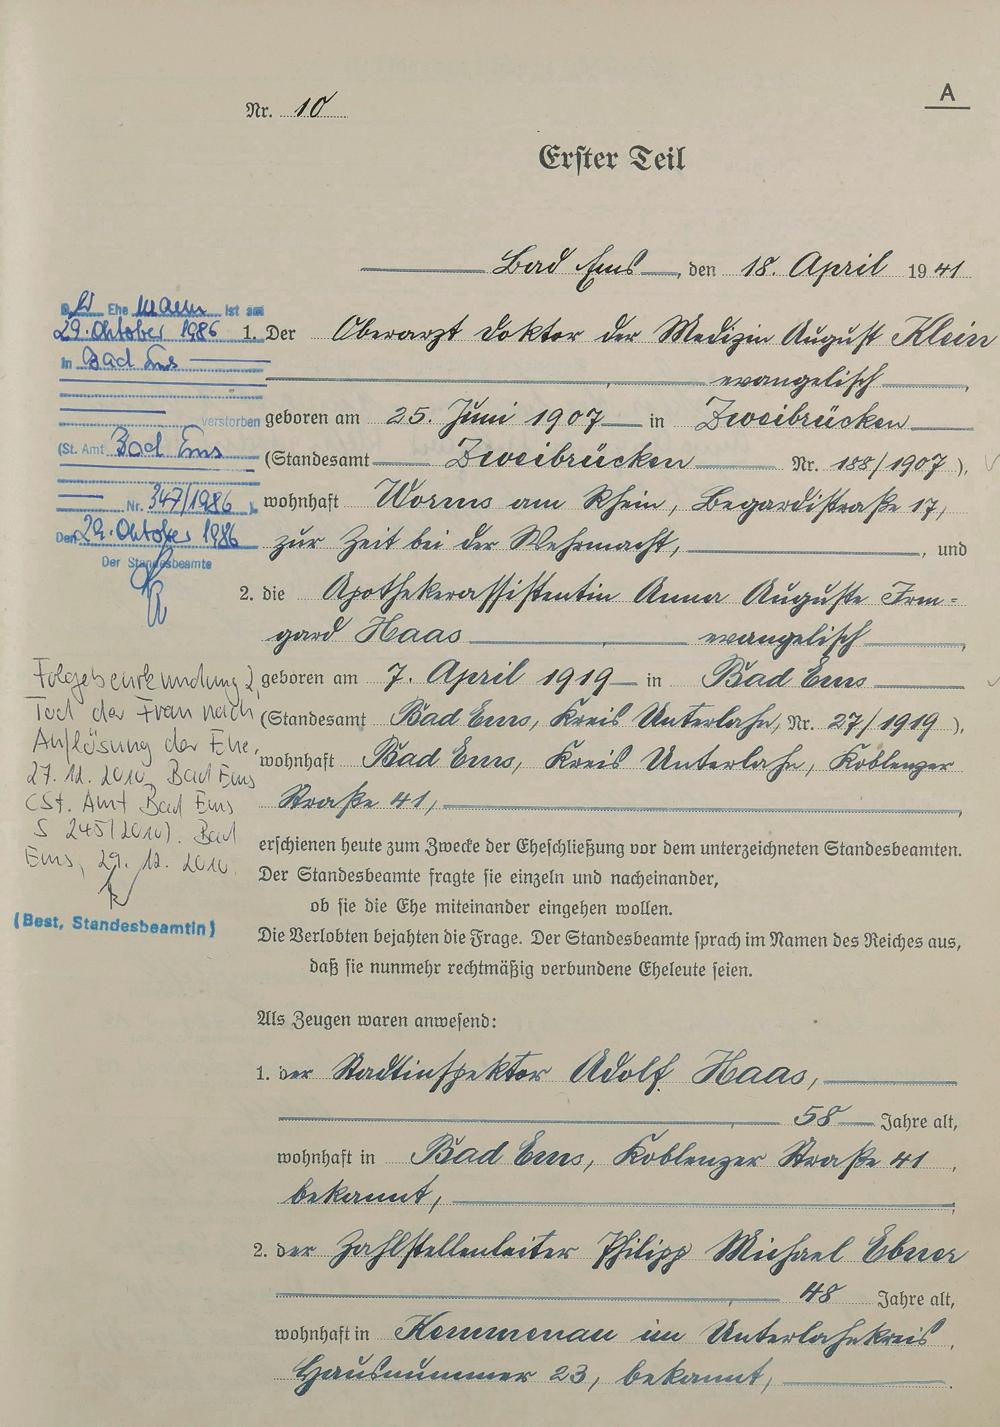 A
Nr. 10
Erster Teil
Bad Ems, den 18. April 1941
1. Der Oberarzt Doktor der Medizin August Klein
evangelisch,
geboren am 25. Juni 1907 in Zweibrücken
(Standesamt Zweibrücken Nr. 188/1907),
wohnhaft Worms am Rhein, Begardistraße 17,
zur Zeit bei der Wehrmacht, , und
2. die Apothekerassistentin Anna Auguste Irm=
gard Haas evangelisch,
geboren am 7. April 1919 in Bad Ems
(Standesamt Bad Ems, Kreis Unterlahn, Nr. 27/1919),
wohnhaft Bad Ems, Kreis Unterlahn, Koblenzer
Straße 41,
erschienen heute zum Zwecke der Eheschließung vor dem unterzeichneten Standesbeamten.
Der Standesbeamte fragte sie einzeln und nacheinander,
ob sie die Ehe miteinander eingehen wollen.
Die Verlobten bejahten die Frage. Der Standesbeamte sprach im Namen des Reiches aus,
daß sie nunmehr rechtmäßig verbundene Eheleute seien.
Als Zeugen waren anwesend:
1. der Stadtinspektor Adolf Haas,
58 Jahre alt,
wohnhaft in Bad Ems, Koblenzer Straße 41,
bekannt,
2. der Zahlstellenleiter Philipp Michael Ebner
48 Jahre alt,
wohnhaft in Kemmenau im Unterlahnkreis,
Hausnummer 23, bekannt,
Der Ehemann ist am
29. Oktober 1986
in Bad Ems
verstorben
(St. Amt Bad Ems
Nr. 347/1986).
Den 29. Oktober 1986
Der Standesbeamte
Folgebeurkundung 2,
Tod der Frau nach
Auflösung der Ehe,
27.12.2010, Bad Ems
(St. Amt Bad Ems
S 245/2010). Bad
Ems, 29.12.2010.
(Best, Standesbeamtin)